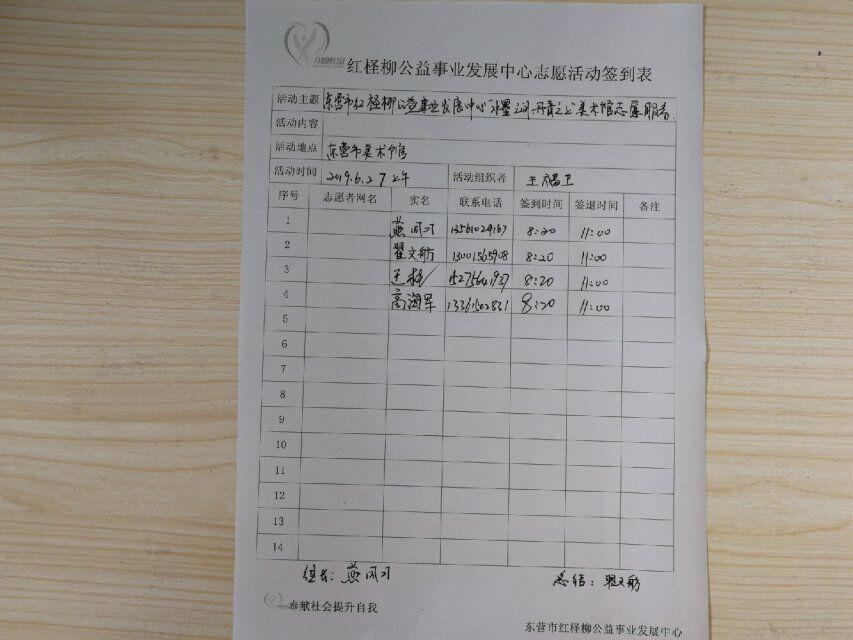 红柽柳公益事业发展中心志愿活动签到表
活动主题 东营市红柽柳公益事业发展中心"水墨之间·丹青之上"美术馆志愿服务.
活动内容
活动地点 东营市美术馆
活动时间 2019.6.27 上午 活动组织者 王福卫
序号 志愿者网名 实名 联系电话 签到时间 签退时间 备注
1 燕同习 13561029167 8:20 11:00
2 翟文舫 13001565908 8:20 11:00
3 王 15275641937 8:20 11:00
4 高海军 8:20 11:00
5
6
7
8
9
10
11
12
13
14
组长: 燕同习 总结: 翟文舫
奉献社会提升自我
东营市红柽柳公益事业发展中心